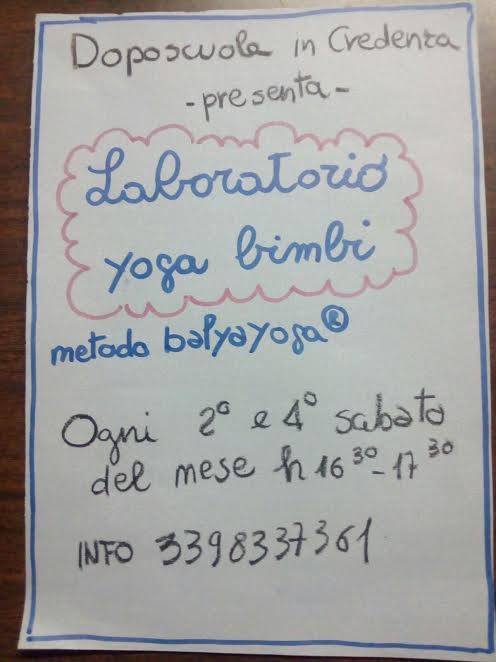 Doposcuola in Credenza
-presenta-
Laboratorio
yoga bimbi
metodo balyayoga®
Ogni 2° e 4° sabato
del mese h 16 30 - 17 30
INFO 3398337361